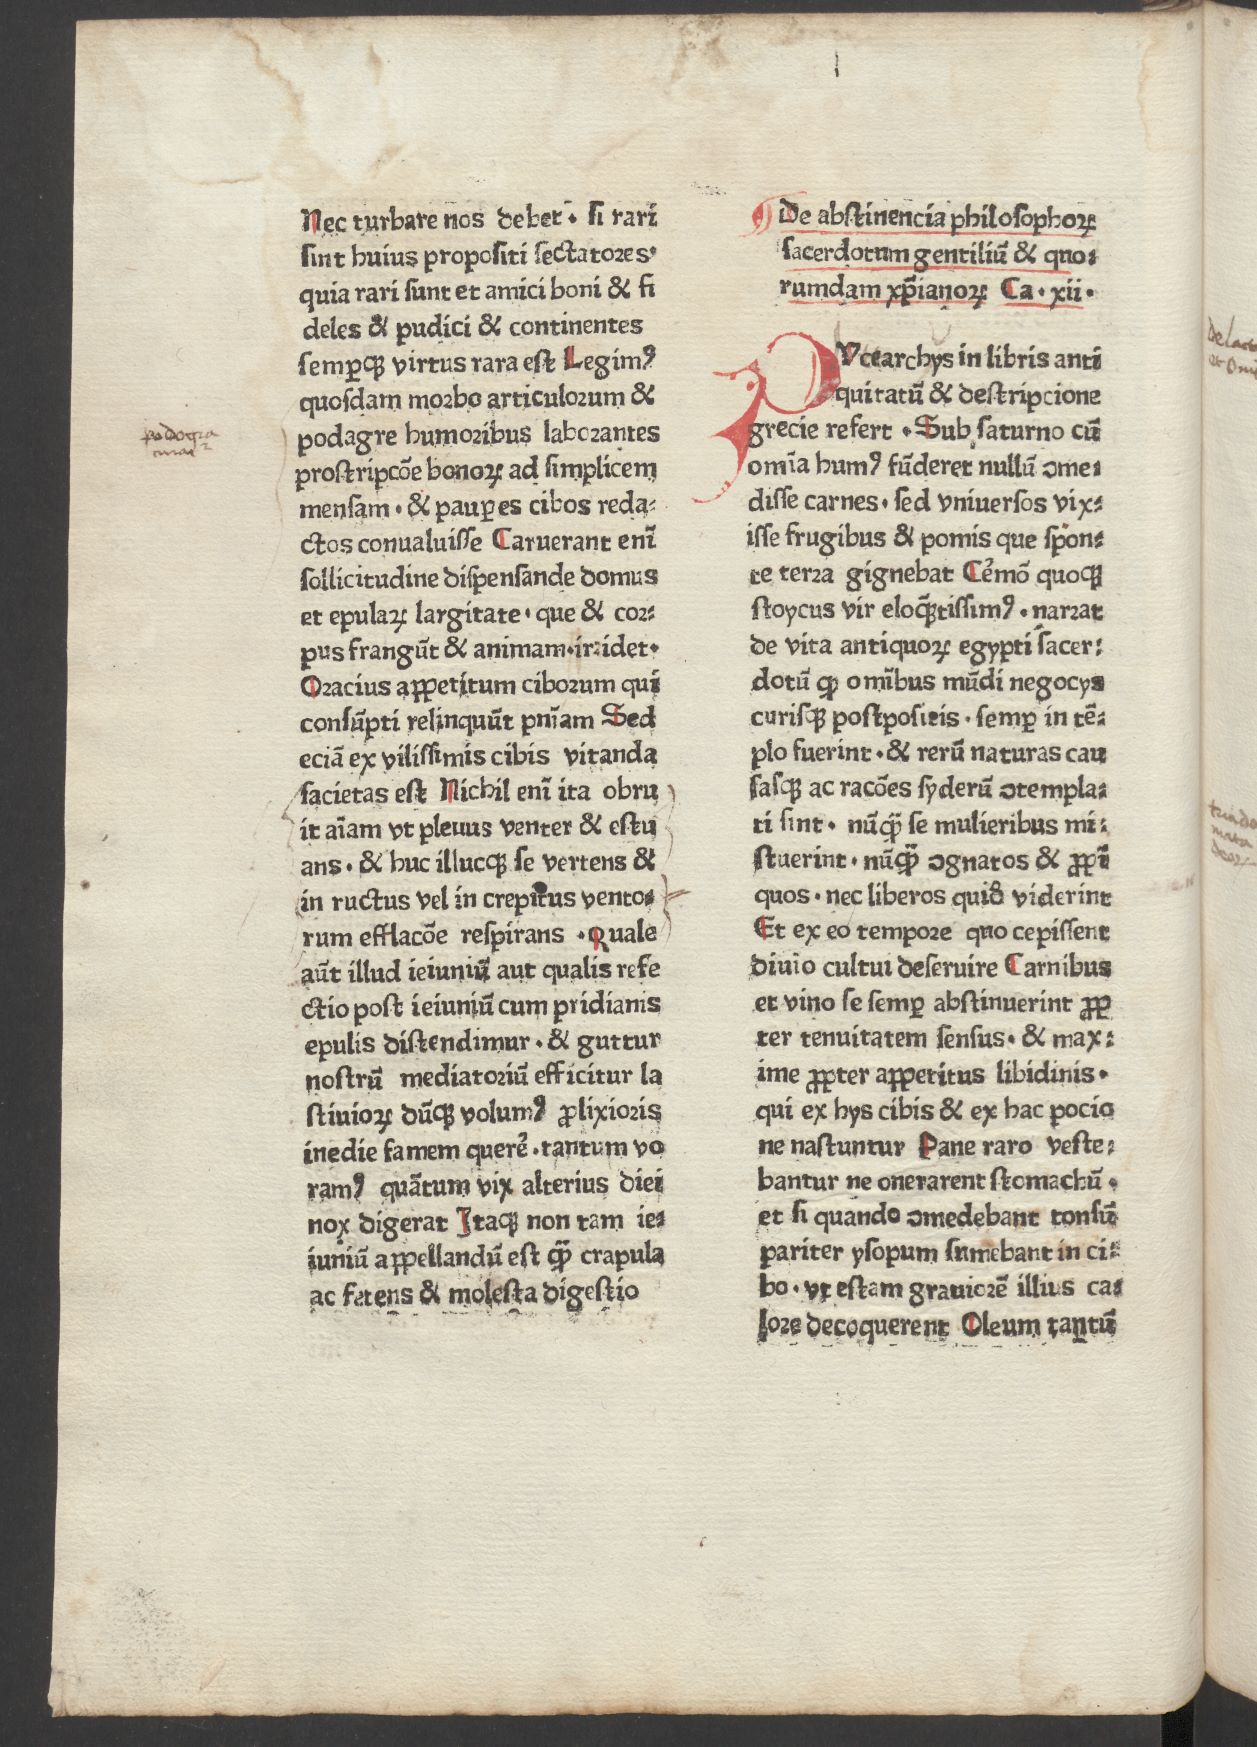 Nec turbare nos debet · si rari
sint huius propositi sectatores·
quia rari sunt et amici boni & fi
deles & pudici & continentes
semꝑqꝫ virtus rara est Legimꝰ
quosdam morbo articulorum &
podagre humoribus laborantes
proscripcōe bonoꝝ ad simplicem
mensam · & pauꝑes cibos reda⸗
ctos conualuisse Caruerant eni̅
sollicitudine dispensande domus
et epulaꝝ largitate · que & cor⸗
pus frangūt & animam · irridet·
Oracius aꝑpetitum ciborum qui
consūpti relinquūt pn̄iam Sed
eciā ex vilissimis cibis vitanda
sacietas est Nichil eni̅ ita obru
it ai̅am vt plenus venter & estu
ans · & huc illucqꝫ se vertens &
in ructus vel in crepitus vento⸗
rum efflacōe respirans · Quale
aūt illud ieiuniū aut qualis refe
ctio post ieiuniū cum pridianis
epulis distendimur · & guttur
nostrū mediatoriū efficitur la
stiuioꝝ dūqꝫ volumꝰ ꝓlixioris
inedie famem querē · tantum vo
ramꝰ quātum vix alterius diei
nox digerat Itaqꝫ non tam ie⸗
iuniū appellandū est qꝫ̄ crapula
ac fetens & molesta digestio
De abstinencia philosophoꝝ
sacerdotum gentiliū & quo⸗
rumdam xp̄ianoꝝ Ca · xii ·
DYcearchys in libris anti
quitatū & descripcione
grecie refert · Sub saturno cū
omi̅a humꝰ fūderet nullū ꝯme⸗
disse carnes · sed vniuersos vix⸗
isse frugibus & pomis que spon⸗
te terra gignebat Cēmō quoqꝫ
stoycus vir eloqꝫ̄tissimꝰ · narrat
de vita antiquoꝝ egypti sacer⸗
dotū ꝙ omi̅bus mūdi negocys
curisqꝫ postpositis · semꝑ in tē⸗
plo fuerint · & rerū naturas cau
sasqꝫ ac racōes syderū ꝯtempla⸗
ti sint · nūqꝫ̄ se mulieribus mi⸗
scuerint · nūqꝫ̄ ꝯgnatos & ꝓpi̅
quos · nec liberos quid̄ viderint
Et ex eo tempore quo cepissent
diuio cultui deseruire Carnibus
et vino se semꝑ abstinuerint ꝓp
ter tenuitatem sensus · & max⸗
ime ꝓpter aꝑpetitus libidinis ·
qui ex hys cibis & ex hac pocio
ne nascuntur Pane raro vesce⸗
bantur ne onerarent stomachū ·
et si quando ꝯmedebant tonsū
pariter ysopum sumebant in ci⸗
bo · vt escam grauiorē illius ca⸗
lore decoquerent Oleum tantū
podogra